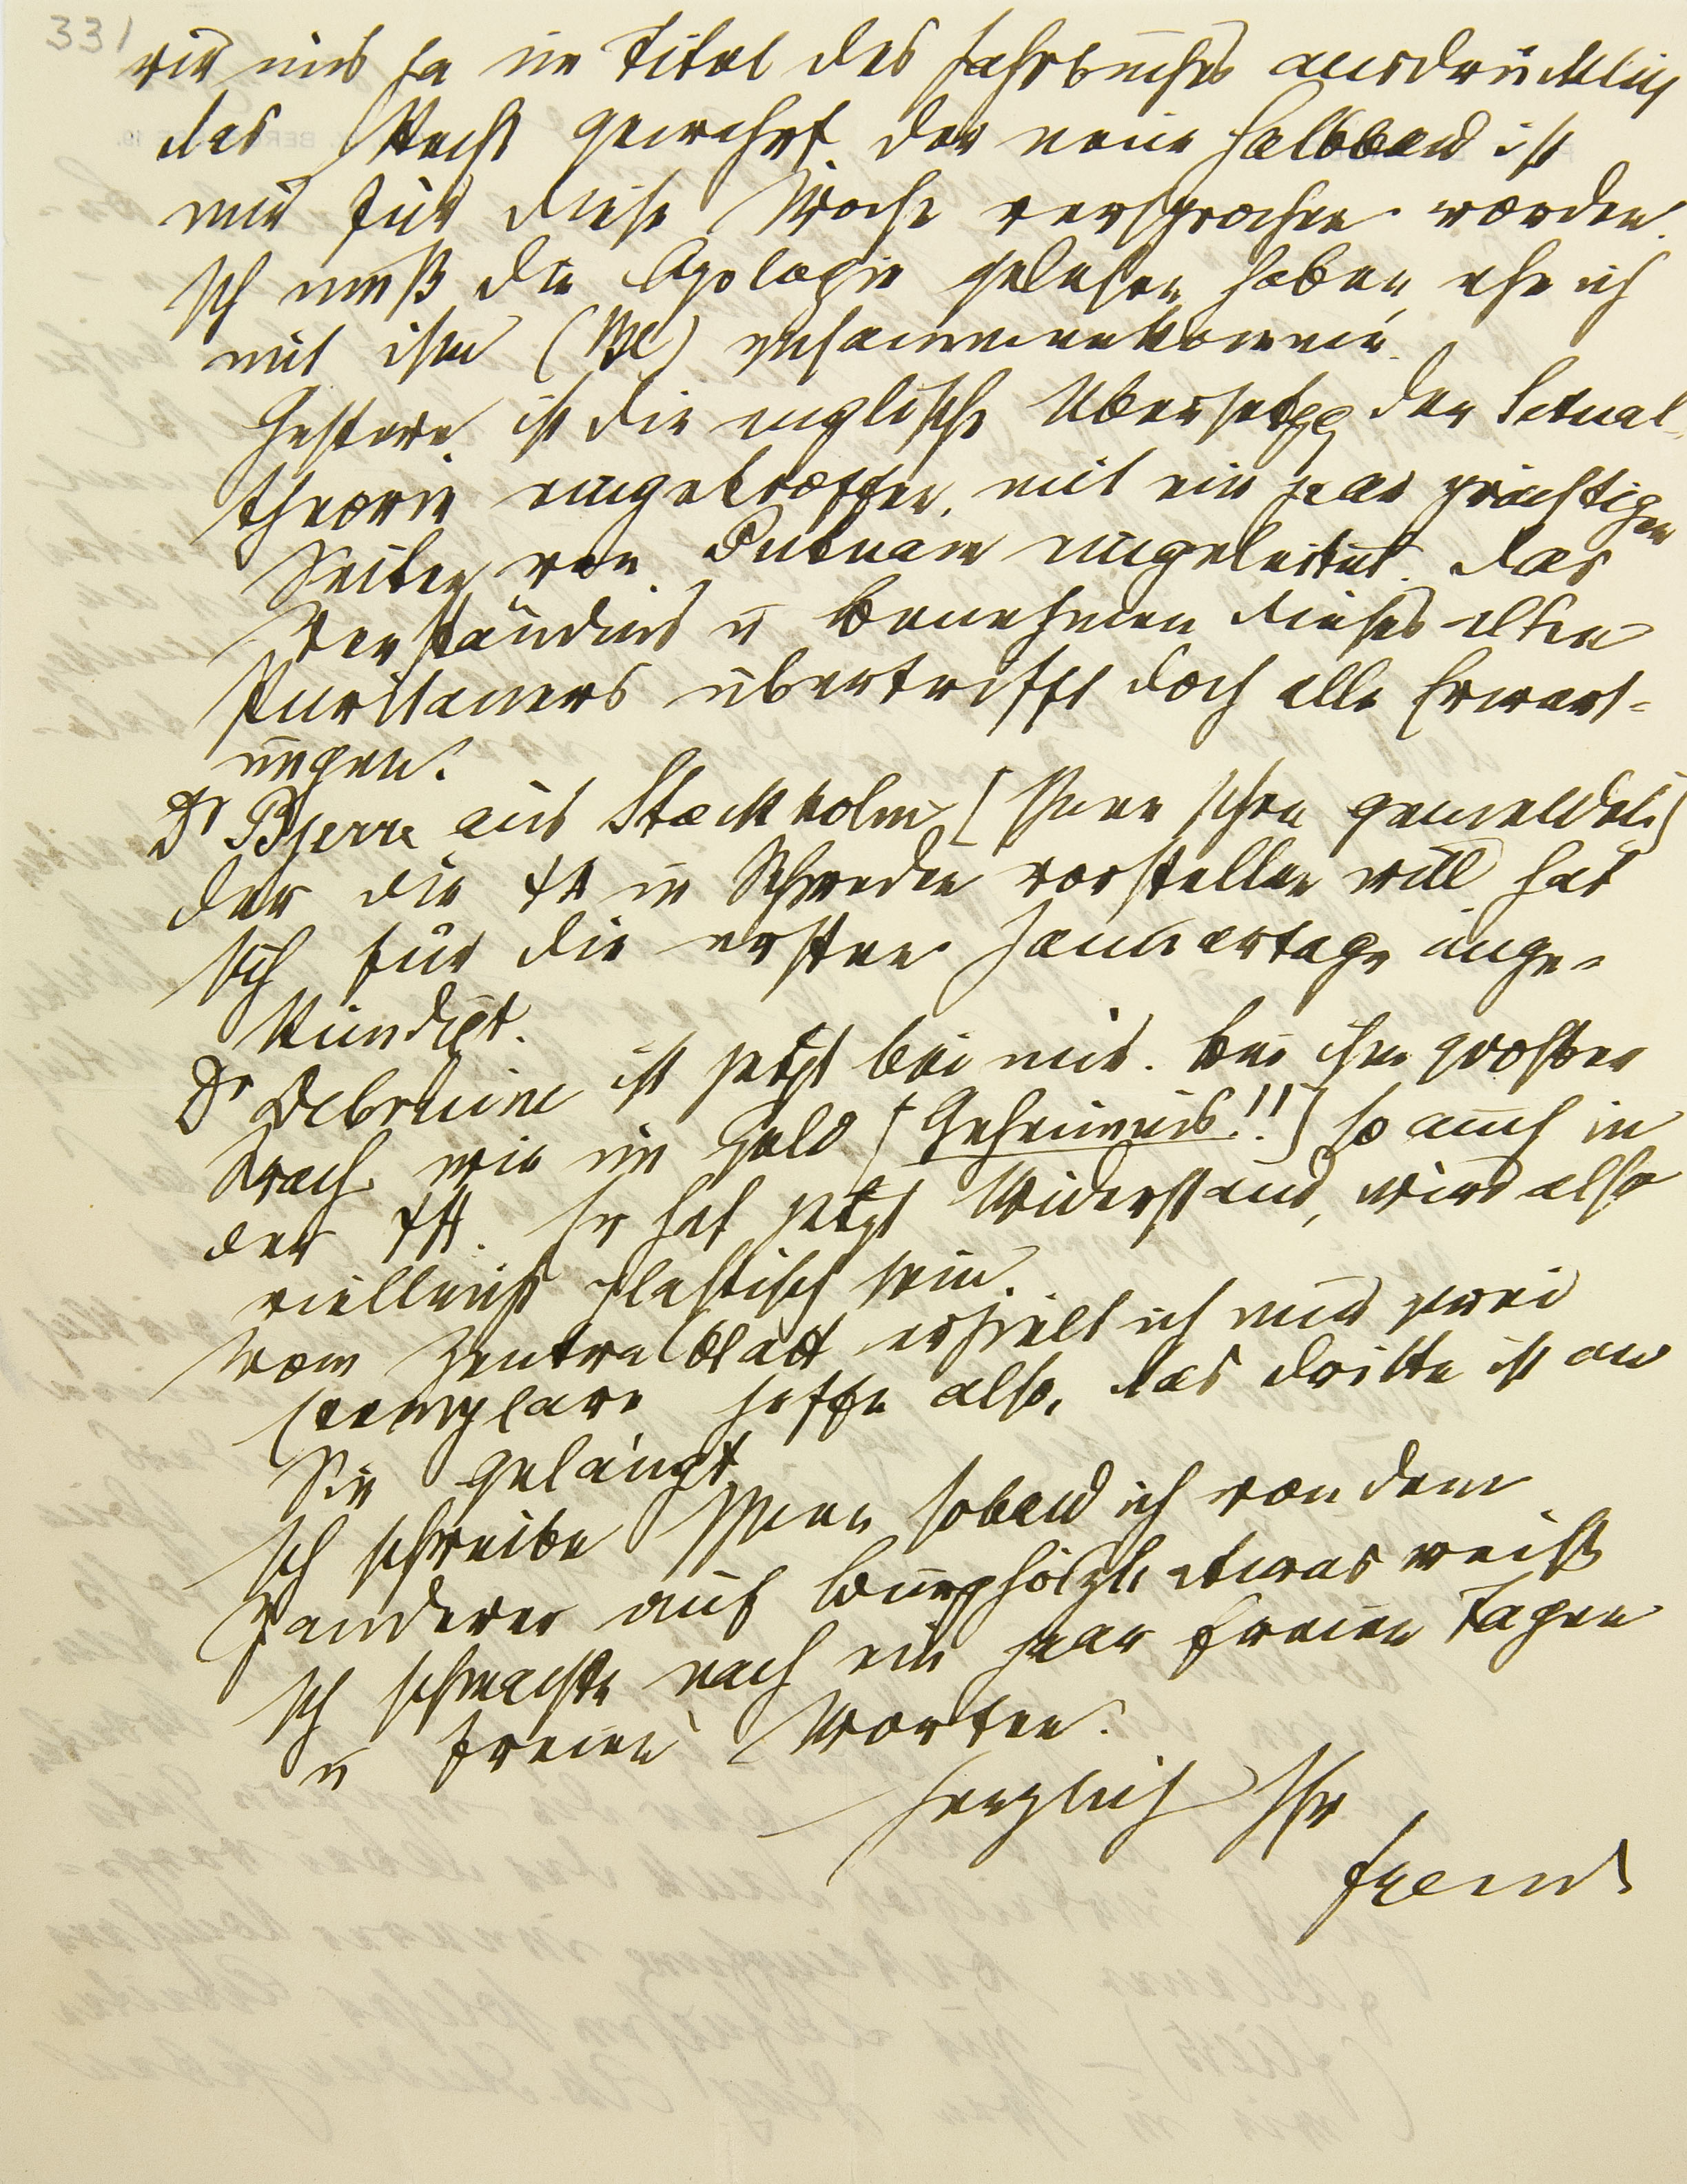 331
wir uns ja im Titel des Jahrbuches ausdrücklich
das Recht gewahrt. Der neue Halbband ist
mir für diese Woche versprochen worden.
Ich muß die Apologie gelesen haben, ehe ich
mit ihm (Bl) zusammenkomme.
Gestern ist die englische Übersetzg der Sexual-
theorie eingetroffen, mit ein paar prächtigen
Seiten von Putnam eingeleitet. Das
Verständnis u Benehmen dieses alten
Puritaners übertrifft doch alle Erwart-
ungen.
Dr Bjerre aus Stockholm [Ihnen schon gemeldet]
der die ΨA in Schweden vorstellen will, hat
sich für die ersten Januartage ange-
kündigt.
Dr Debruine ist jetzt bei mir. Bei ihm großer
Krach wie im Geld [Geheimnis!!] so auch in
der ΨA. Er hat jetzt Widerstand, wird also
vielleicht plastisch sein.
Vom Zentralblatt erhielt ich nur zwei
Exemplare hoffe also, das dritte ist an
Sie gelangt.
Ich schreibe Ihnen sobald ich von dem
Zauderer auf Burghölzli etwas weiß
Ich schmachte nach ein paar freien Tagen
u freien Worten.
Herzlich Ihr
Freud